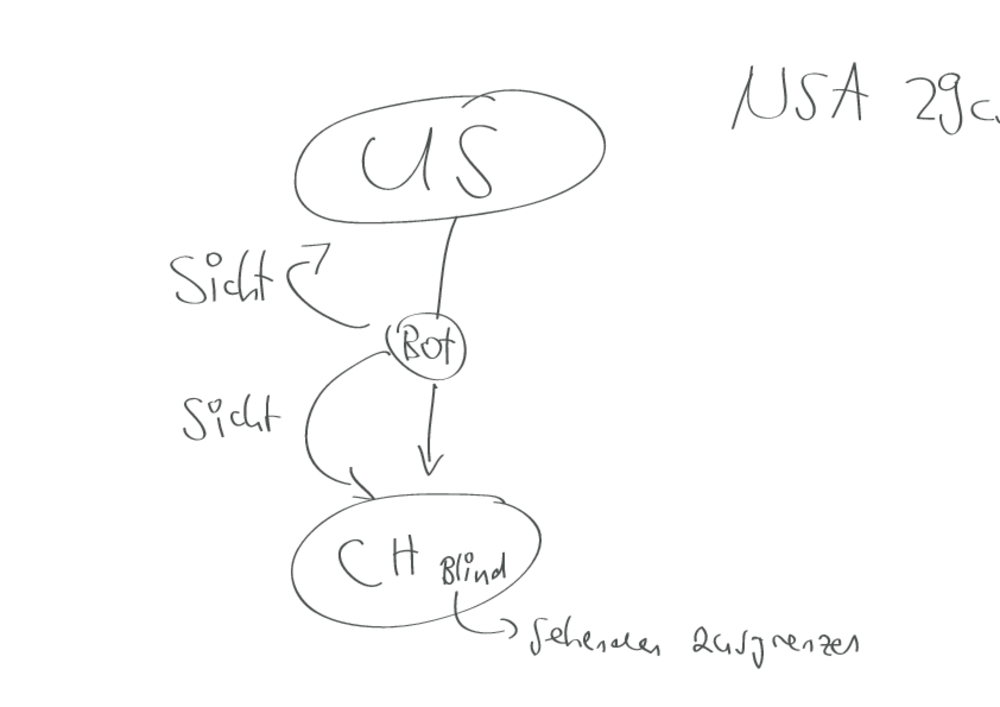 NSA
US
Sicht
Bot
Sicht
CH Blind
Sehenden ausgrenzen